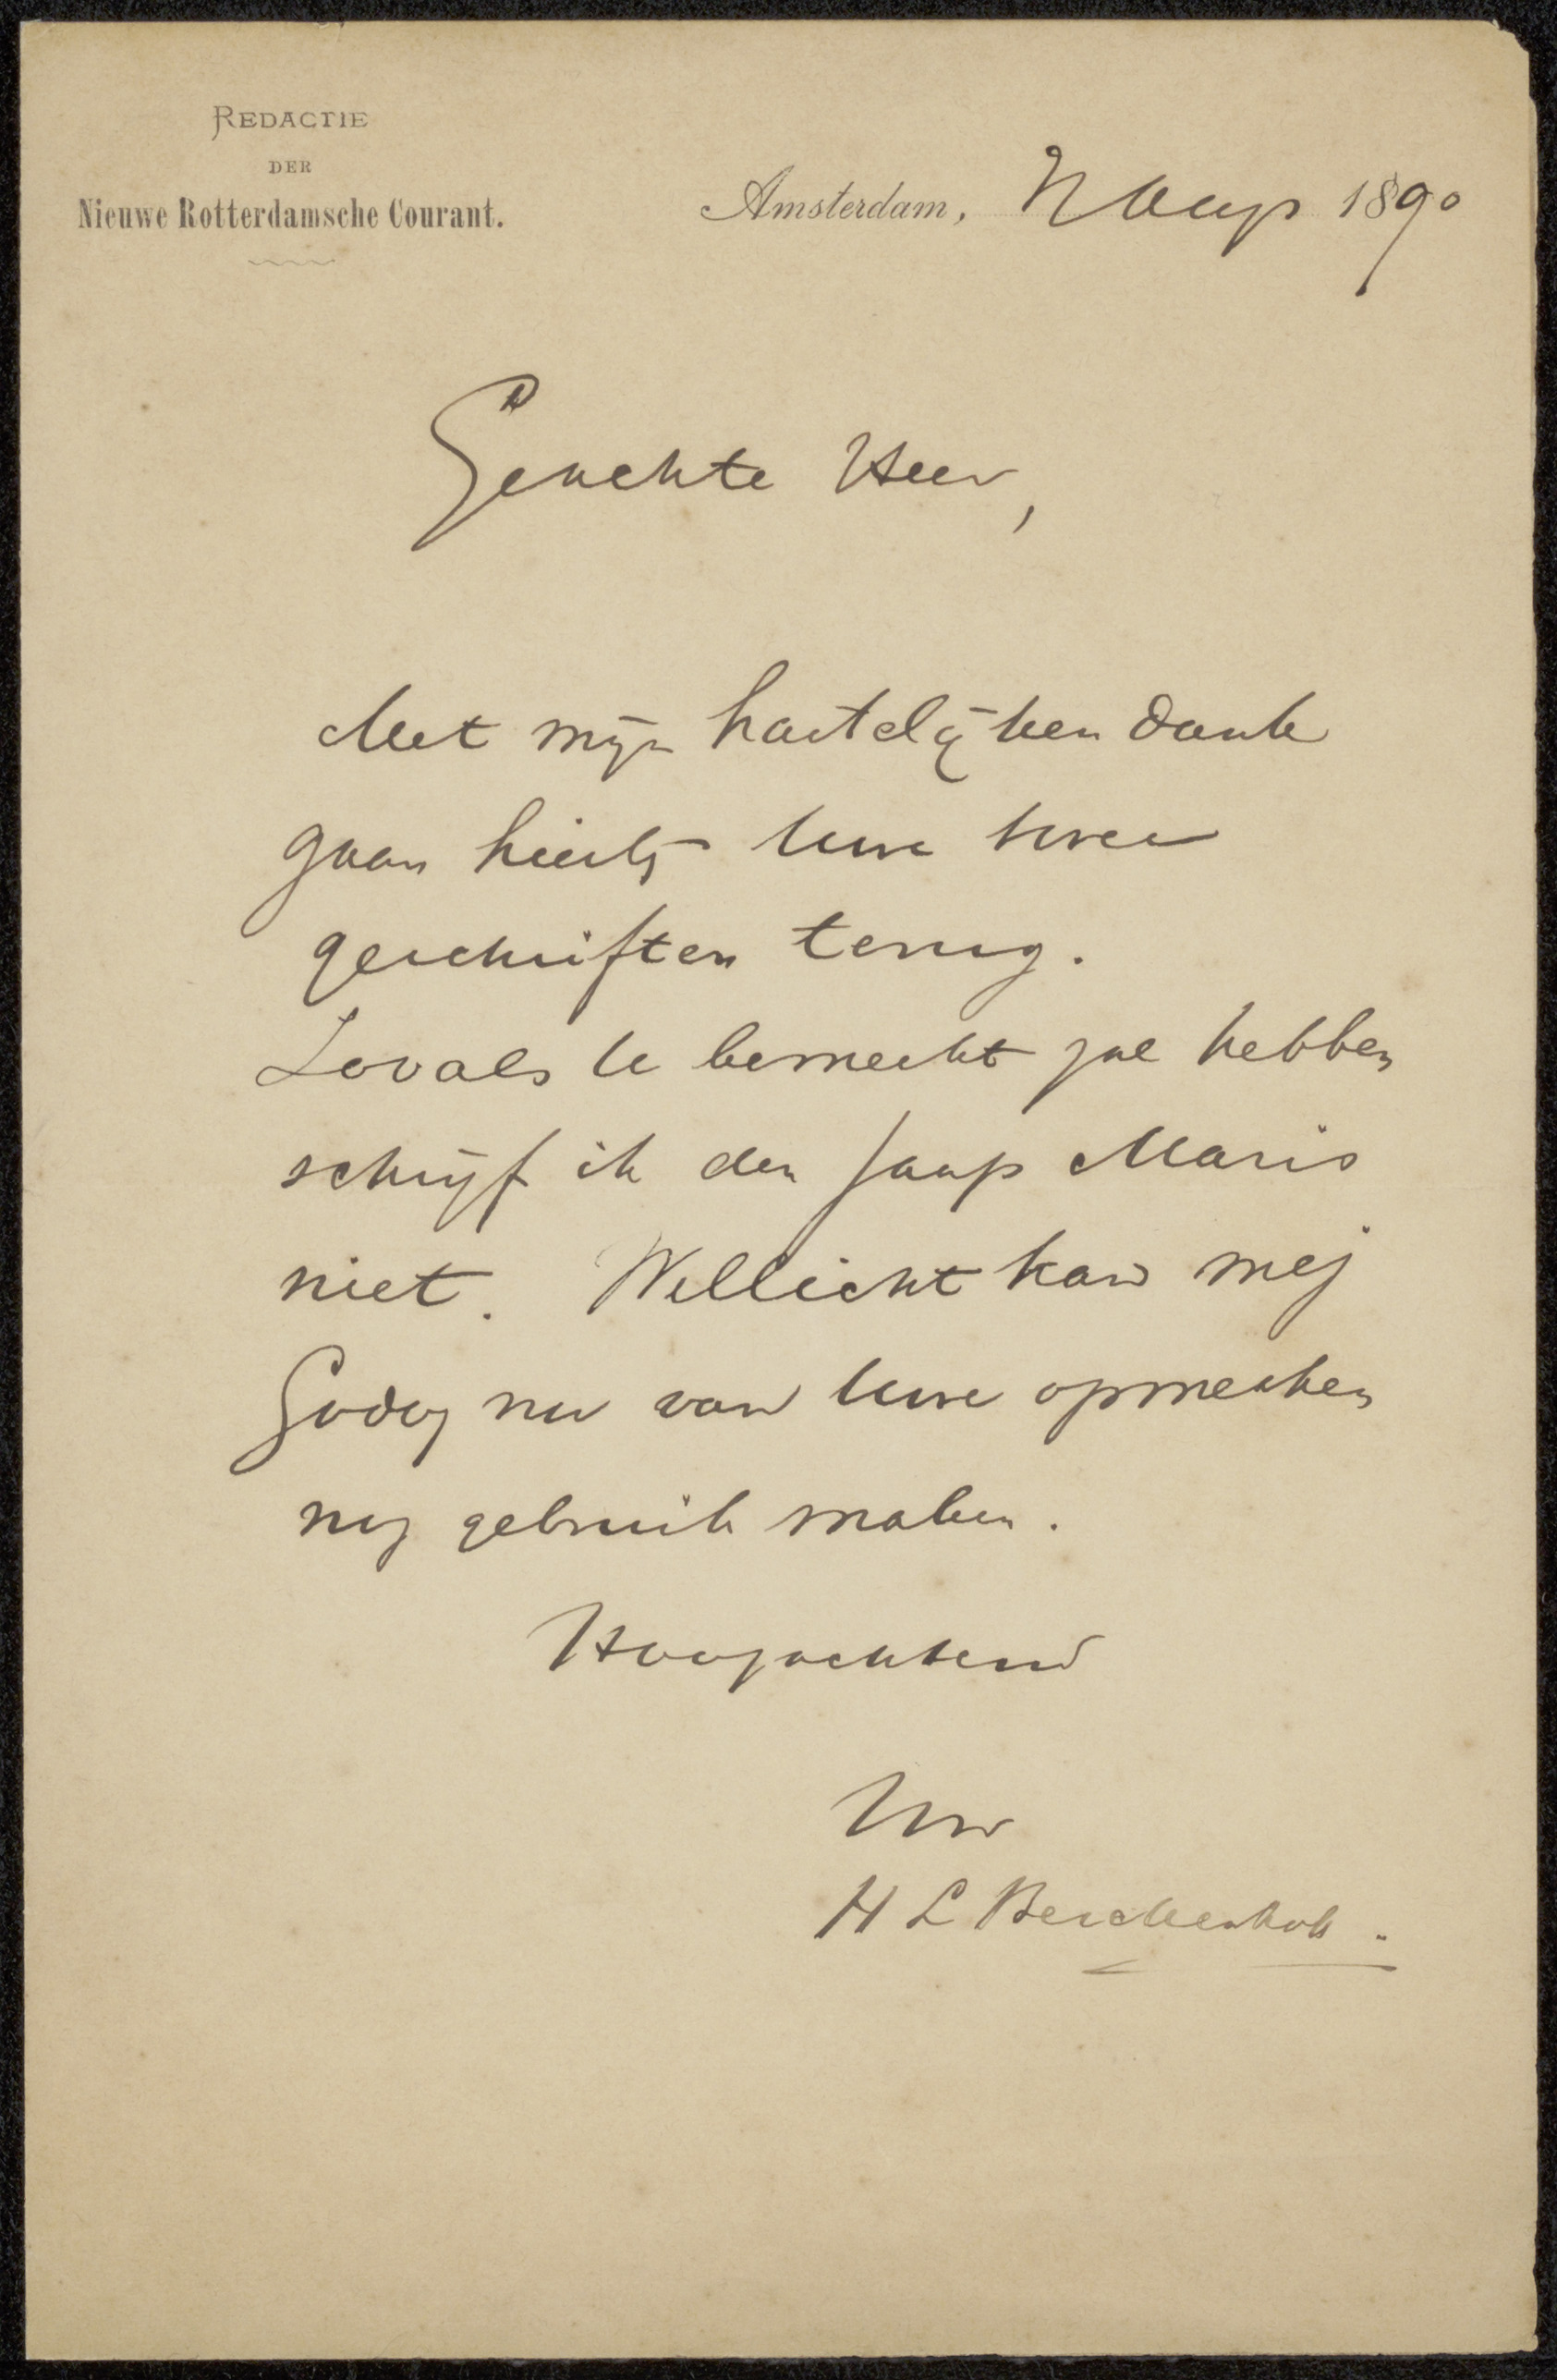 REDACTIE
DER
Nieuwe Rotterdamsche Courant.
Amsterdam, 1890
Geachte Heer,
Met mijn hartelijken dank
gaan hierbij Uwe twee
geschriften terug.
Zooals U bemerkt zal hebben
schrijf ik den Jaap Maris
niet. Wellicht kan mej
Godoy nu van Uwe opmerken
nog gebruik maken.
Hoogachtend
Uw
H L Berckenhoff.